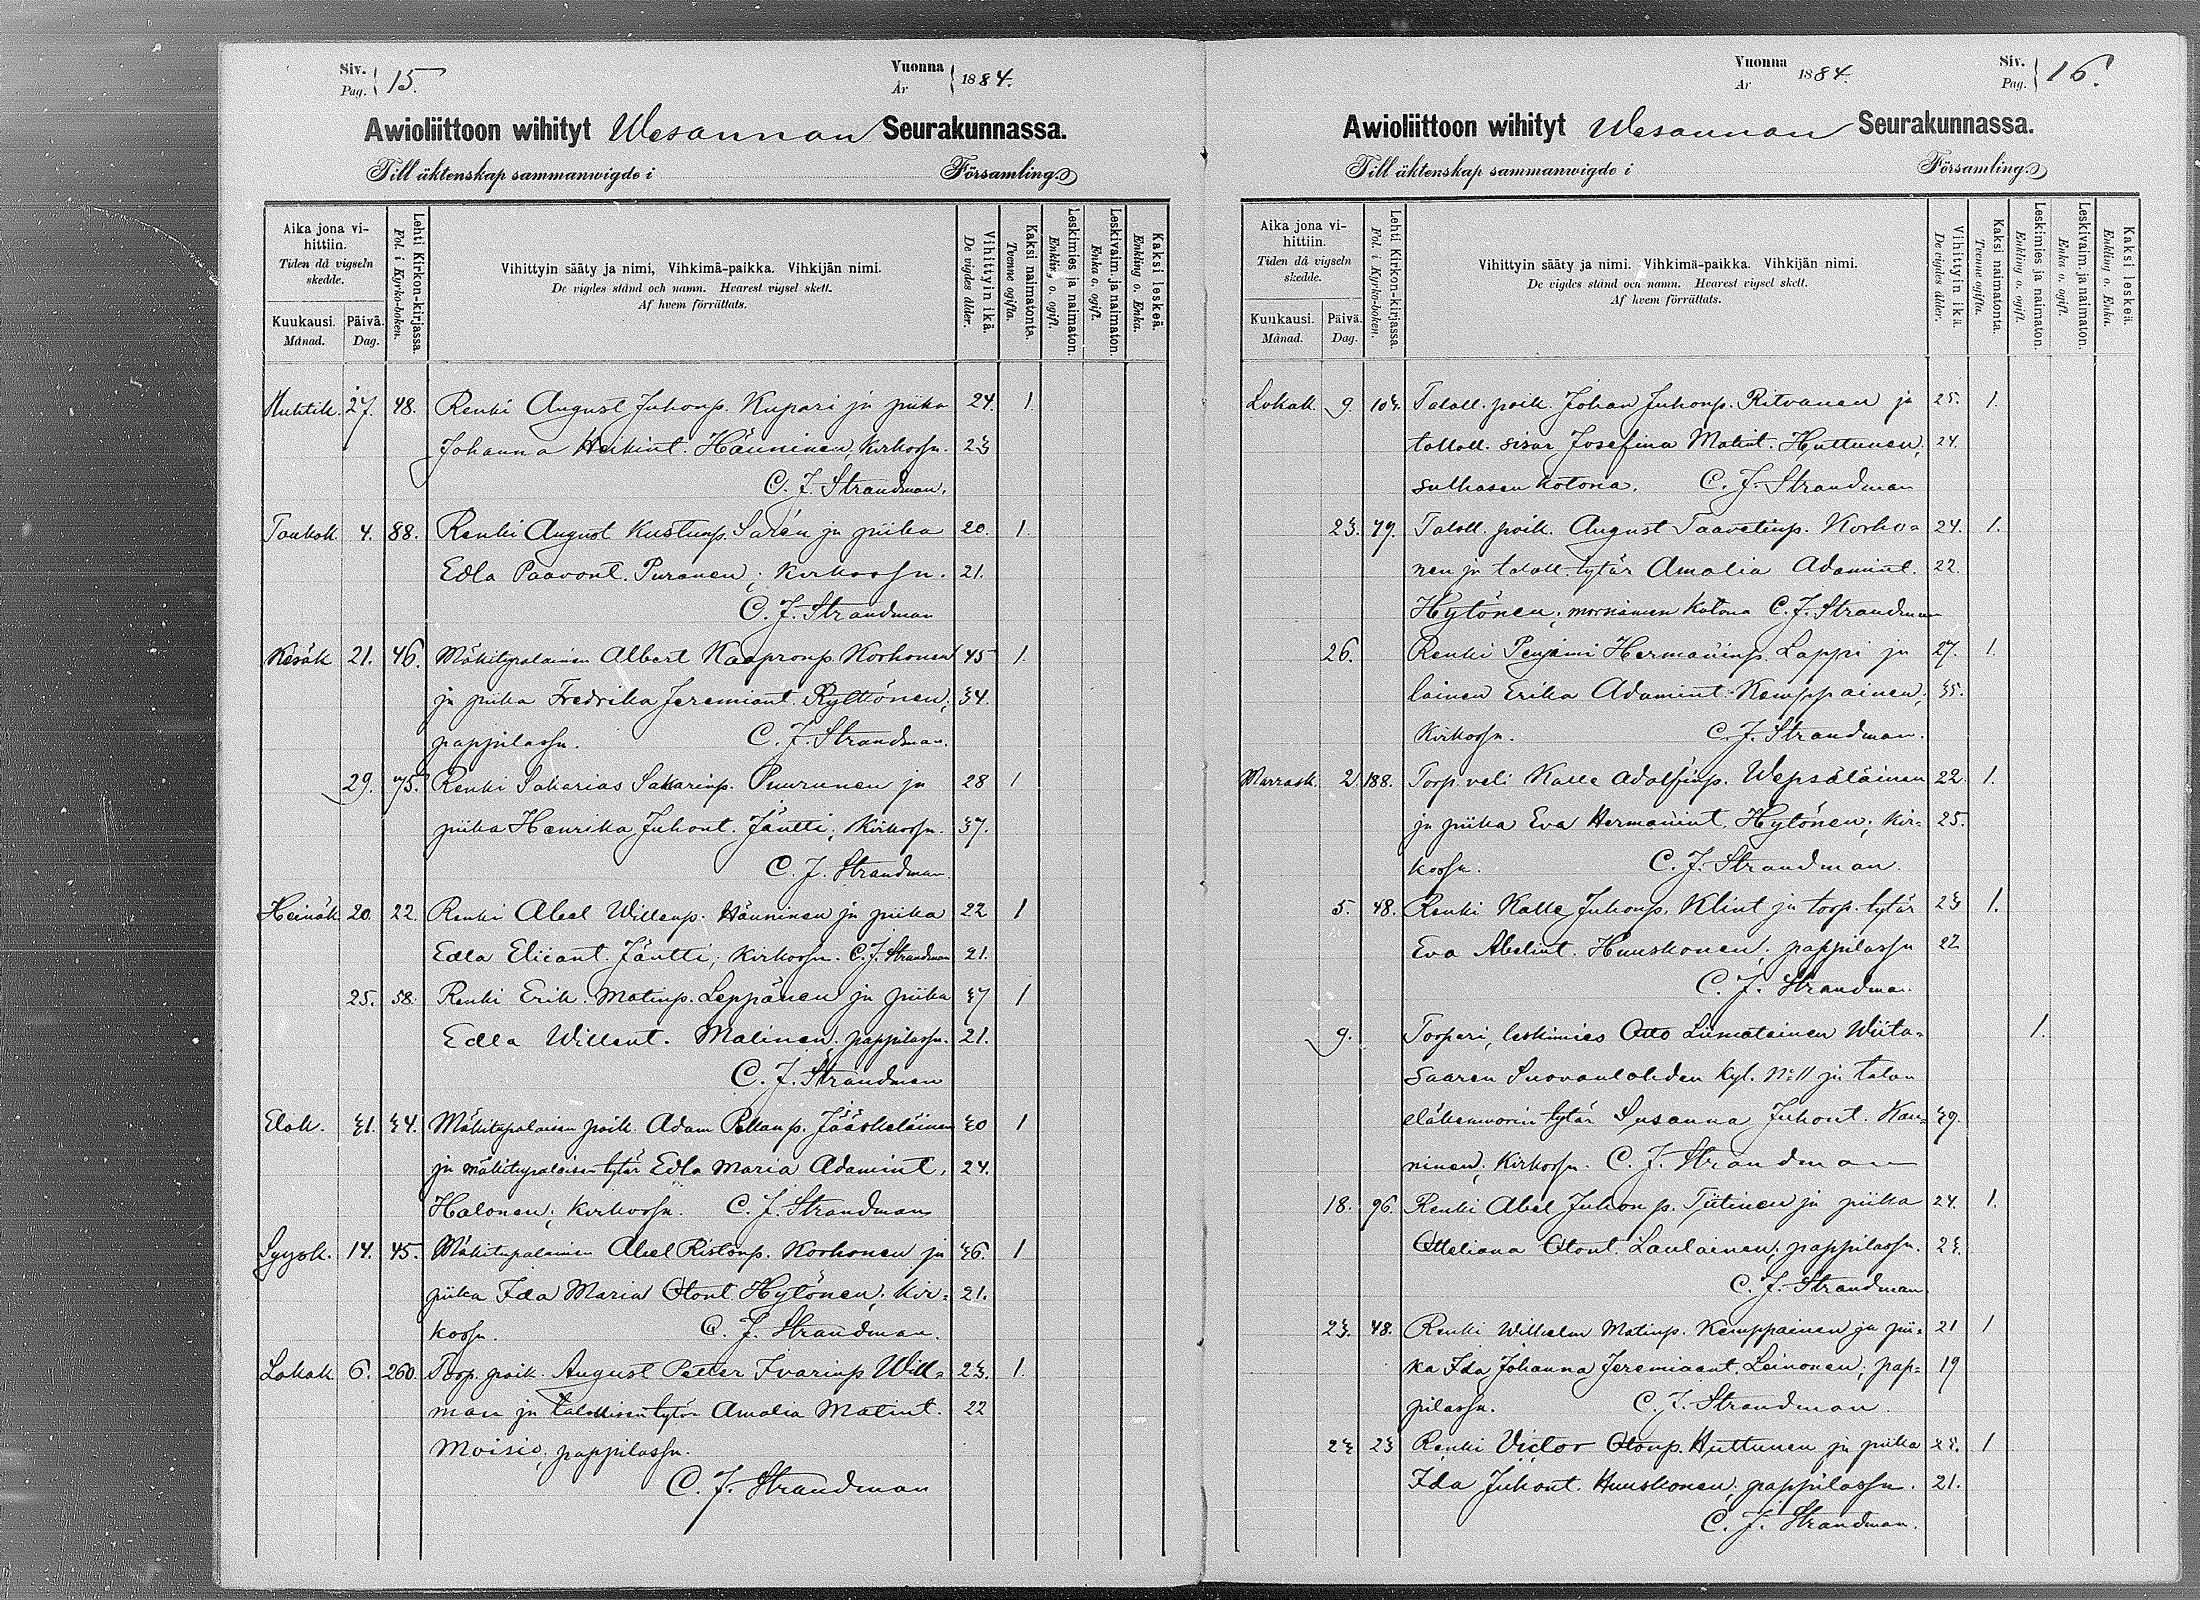 Siv. Pag. 15.
Vuonna År 1884.
Awioliittoon wihityt Wesannan Seurakunnassa.
Till äktenskap sammanwigde i Församling.
Aika jona vihittiin. Tiden då vigseln skedde.
Kuukausi. Månad.
Päivä. Dag.
Lehti Kirkon-kirjassa. Fol. i Kyrko-boken.
Vihittyin sääty ja nimi, Vihkimä-paikka. Vihkijän nimi.
De vigdes stånd och namn. Hvarest vigsel skett.
Af hvem förrättats.
Vihittyin ikä. De vigdes ålder.
Kaksi naimatonta. Tvenne ogifta.
Leskimies ja naimaton. Enkling o. ogift.
Leskivaim. ja naimaton. Enka o. ogift.
Kaksi leskeä. Enkling o. Enka.
Huhtik. 27. 48. Renki August Juhonp. Kupari ja piika 24. 1.
Johanna Heikint. Hänninen, kirkossa. 23
C. J. Strandman.
Toukok 4. 88. Renki August Kustunp. Sarén ja piika 20. 1.
Edla Paavont. Puranen; kirkossa. 21.
C. J. Strandman
Kesäk 21. 46. Mäkitupalainen Albert Kaapronp. Korhonen 45 1.
ja piika Fredrika Jeremiant. Rytkönen; 34.
pappilassa. C. J. Strandman.
29. 75. Renki Sakarias Sakarinp. Puurunen ja 28 1
piika Henrika Juhont. Jäntti; kirkossa. 37.
C. J. Strandman.
Heinäk 20 22. Renki Abel Willenp. Hänninen ja piika 22 1
Edla Eliaant. Jäntti; kirkossa. C. J. Strandman 21.
25. 58. Renki Erik. Matinp. Leppänen ja piika 37 1
Edla Willent. Malinen; pappilassa. 21.
C. J. Strandman
Elok. 31. 34. Mäkitupalaisen poik. Adam Pekanp. Jääskeläinen 30 1
ja mäkitupalaisen tytär Edla Maria Adamint. 24.
Halonen; kirkossa. C. J. Strandman
Syysk. 14. 45. Mäkitupalainen Abel Ristonp. Korhonen ja 36. 1
piika Ida Maria Otont. Hytönen; kir- 21.
kossa. C. J. Strandman.
Lokak 6. 260. Torp. poik. August Petter Ivarinp. Will- 23. 1.
man ja talollisen tytär Amalia Matint. 22
Moisio; pappilassa.
C. J. Strandman
Vuonna År 1884.
Siv. Pag. 16.
Awioliittoon wihityt Wesannan Seurakunnassa.
Till äktenskap sammanwigde i Församling.
Aika jona vihittiin. Tiden då vigseln skedde.
Kuukausi. Månad.
Päivä. Dag.
Lehti Kirkon-kirjassa. Fol. i Kyrko-boken.
Vihittyin sääty ja nimi. Vihkimä-paikka. Vihkijän nimi.
De vigdes stånd och namn. Hvarest vigsel skett.
Af hvem förrättats.
Vihittyin ikä. De vigdes ålder.
Kaksi naimatonta. Tvenne ogifta.
Leskimies ja naimaton. Enkling o. ogift.
Leskivaim. ja naimaton. Enka o. ogift.
Kaksi leskeä. Enkling o. Enka.
Lokak 9 104. Taloll. poik. Johan Juhonp. Ritvanen ja 25. 1.
taloll. sisar Josefina Matint. Huttunen; 24.
sulhasen kotona. C. J. Strandman
23. 79. Taloll. poik. August Taavetinp. Korho- 24. 1.
nen ja taloll. tytär Amalia Adamint. 22.
Hytönen; morsiamen kotona C. J. Strandman
26. Renki Penjami Hermaninp. Lappi ja 27. 1.
lainen Erika Adamint. Kemppainen; 35.
kirkossa. C. J. Strandman.
Marrask. 2. 188. Torp. veli Kalle Adolfinp. Wepsäläinen 22 1.
ja piika Eva Hermanint. Hytönen; kir- 25.
kossa. C. J. Strandman.
5. 48. Renki Kalle Juhonp. Klint ja torp. tytär 23 1.
Eva Abelint. Huuskonen; pappilassa 22
C. J. Strandman
9. Torpari, leskimies Otto Liimatainen Wiita- 1.
saaren Suovanlahden kyl. No 11 ja talon
eläkevaarin tytär Susanna Juhont. Kau- 39.
ninen; kirkossa. C. J. Strandman
18. 96. Renki Abel Juhonp. Tiitinen ja piika 24. 1.
Otteliana Otont. Laulainen; pappilassa. 23.
C. J. Strandman.
23. 48. Renki Wilhelm Matinp. Kemppainen ja pii- 21 1
ka Ida Johanna Jeremiaant. Leinonen; pap- 19
pilassa. C. J. Strandman.
23 23 Renki Victor Otonp. Huttunen ja piika 1
Ida Juhont. Huuskonen; pappilassa. 21.
C. J. Strandman.